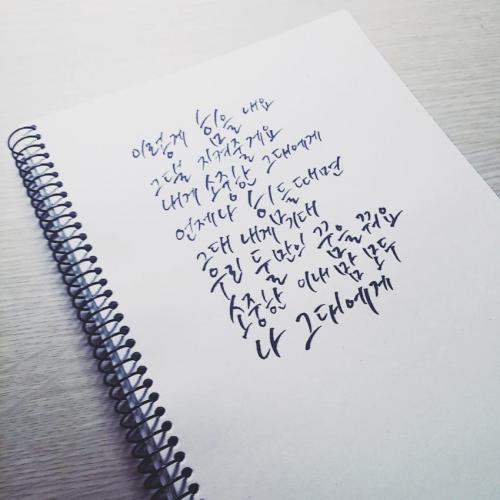 이렇게 힘을 내요
그댈 지켜줄게요
내게 소중한 그대에게
언제나 힘들때면
그대 내게 기대
우린 둘만의 꿈을 꿔요
소중한 이내 맘 모두
나 그대에게